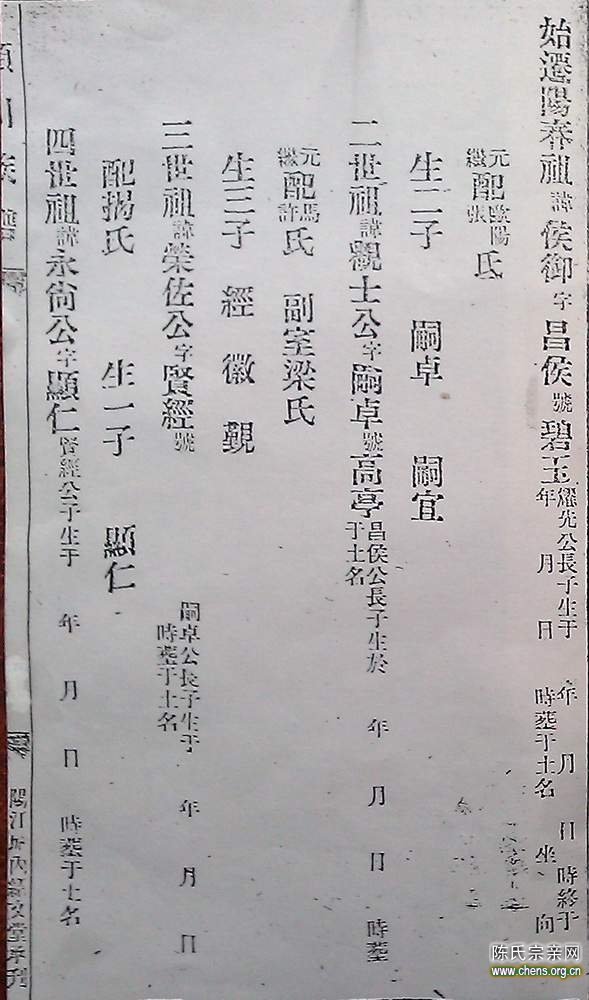 始遷陽春祖諱侯御字昌侯號碧玉耀先公長子生于 年 月 日時終于
年 月 日 時葬于土名 坐 向
元繼配歐陽張氏
生二子 嗣卓 嗣宜
二世祖諱觀士公字嗣卓號高亭昌侯公長子生於 年 月 日 時葬
于土名
元繼配馬許氏 副室梁氏
生三子 經 徽 覲
三世祖諱榮佐公字賢經號 嗣卓公長子生于 年 月 日
時葬于土名
配揭氏 生一子 顯仁
四世祖諱永尙公字顯仁賢經公子生于 年 月 日 時葬于土名
族譜
陽江
陈氏宗亲网
www.chens.org.cn